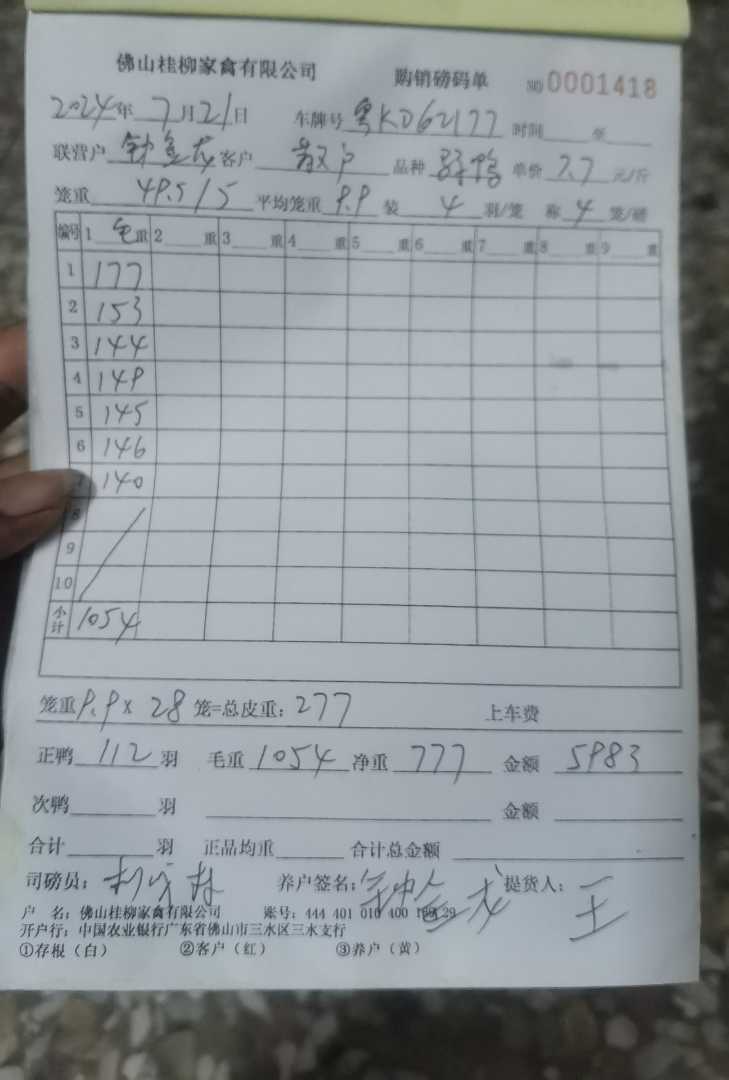 佛山桂柳家禽有限公司 购销磅码单 NO 0001418
2024年 7月21日 车牌号 粤KD62177 时间 至
联营户 钟金龙 客户 散户 品种 单价 7.7 元/斤
笼重 49.5/5 平均笼重 9.9 装 4 羽/笼 称 4 笼/磅
编号 1 毛重 2 重 3 重 4 重 5 重 6 重 7 重 8 重 9 重
1 177
2 153
3 144
4 149
5 145
6 146
140
8
9
10
小计 1054
笼重 9.9 × 28 笼=总皮重: 277 上车费
正鸭 112 羽 毛重 1054 净重 777 金额 5983
次鸭 羽 金额
合计 羽 正品均重 合计总金额
司磅员: 养户签名: 钟金龙 提货人: 王
户 名: 佛山桂柳家禽有限公司 账号: 444 401 010 400
开户行: 中国农业银行广东省佛山市三水区三水支行
①存根（白） ②客户（红） ③养户（黄）